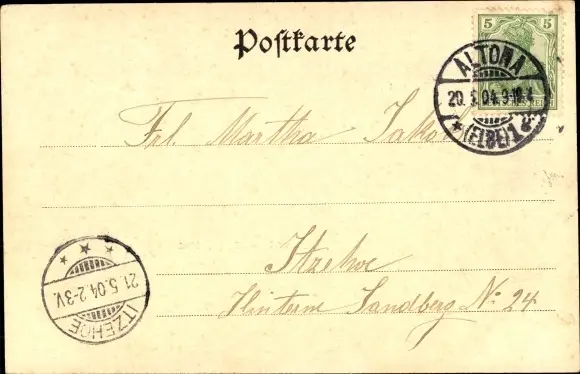 Postkarte
5 5
ALTONA
20.5.04.9-10
* (ELBE) 1
Frl. Martha
Itzehoe
Hinterm Sandberg No 24
ITZEHOE
21.5.04.2-3V.